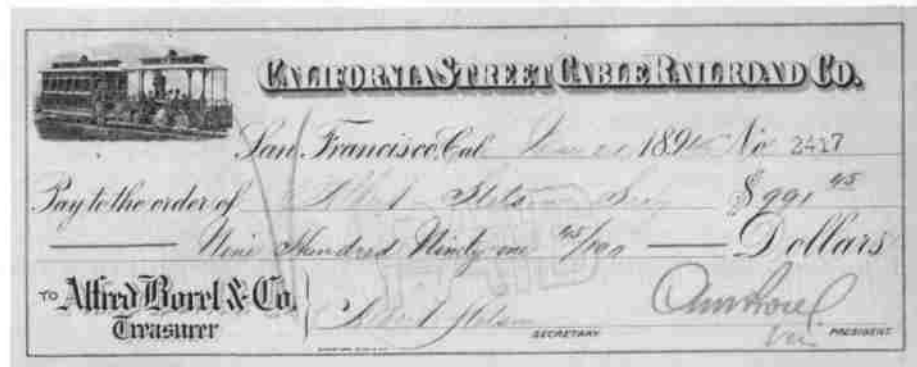 CALIFORNIA STREET CABLE RAILROAD CO.
San Francisco, Cal. 189 No 2417
Pay to the order of Stetson $991 45
Nine Hundred Ninety one 45/100 Dollars
PAID
TO Alfred Borel & Co.
Treasurer
Stetson
SECRETARY
Ant Borel
Vice PRESIDENT